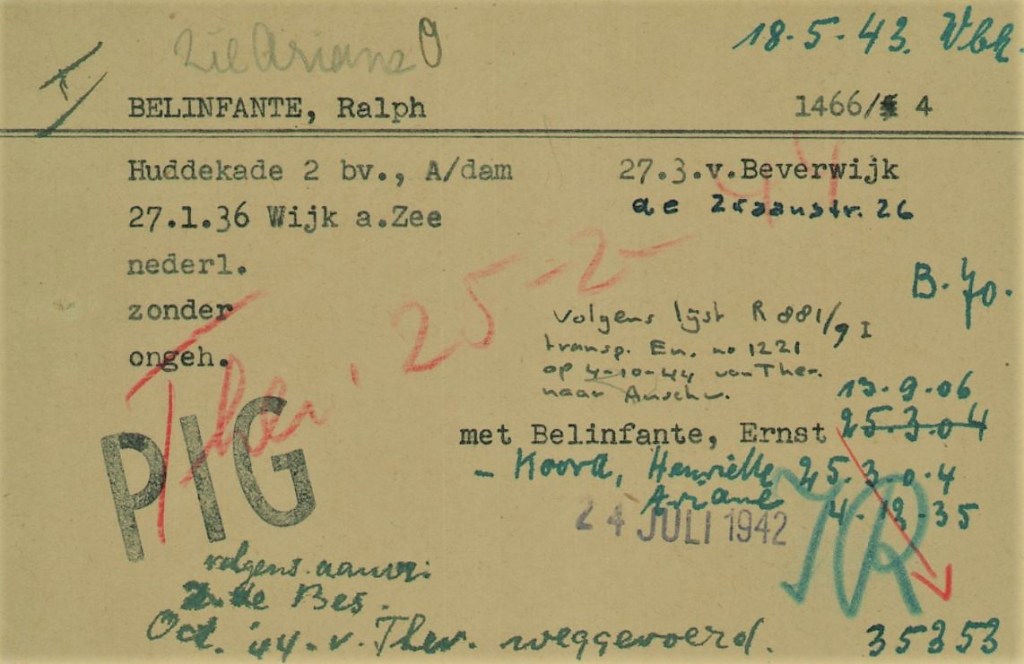 18-5-43. Wbk.
BELINFANTE, Ralph
1466/ 4
Huddekade 2 bv., A/dam
27.3.v.Beverwijk
de 26
27.1.36 Wijk a.Zee
nederl.
zonder
ongeh.
Ther. 25-2-44
B.70.
volgens lijst R 881/9 I
transp. En. no 1221
op 4-10-44 van Ther.
naar Auschw.
13-9-06
met Belinfante, Ernst 25-3-04
- Koord, Henriette 25-3-04
Ariane 4-12-35
PIG
24 JULI 1942
JR
volgens
de Bes.
Oct. '44 v. Ther. weggevoerd.
35353